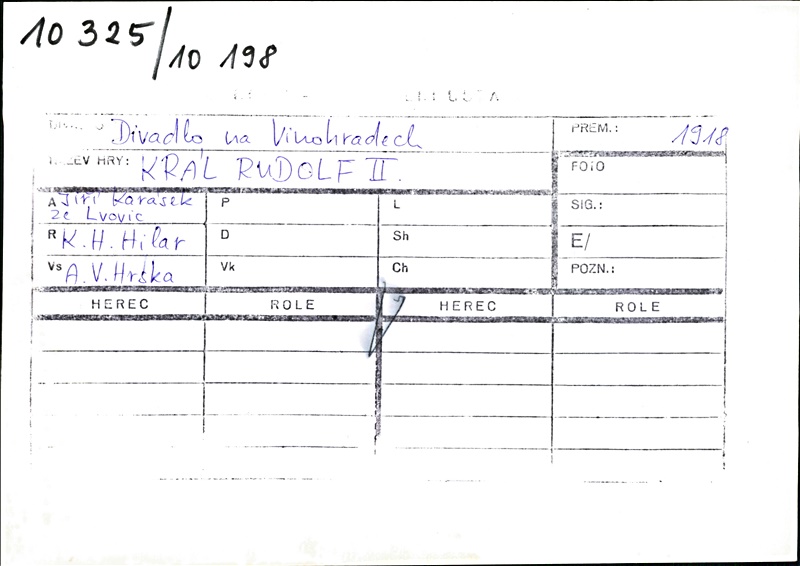 10 325/10 198
Divadlo na Vinohradech
PREM.: 1918
HRY: KRÁL RUDOLF II.
FOTO
A Jiří Karásek ze Lvovic
P
L
SIG.:
R K. H. Hilar
D
Sh
E/
Vs A. V. Hrska
Vk
Ch
POZN.:
HEREC ROLE HEREC ROLE